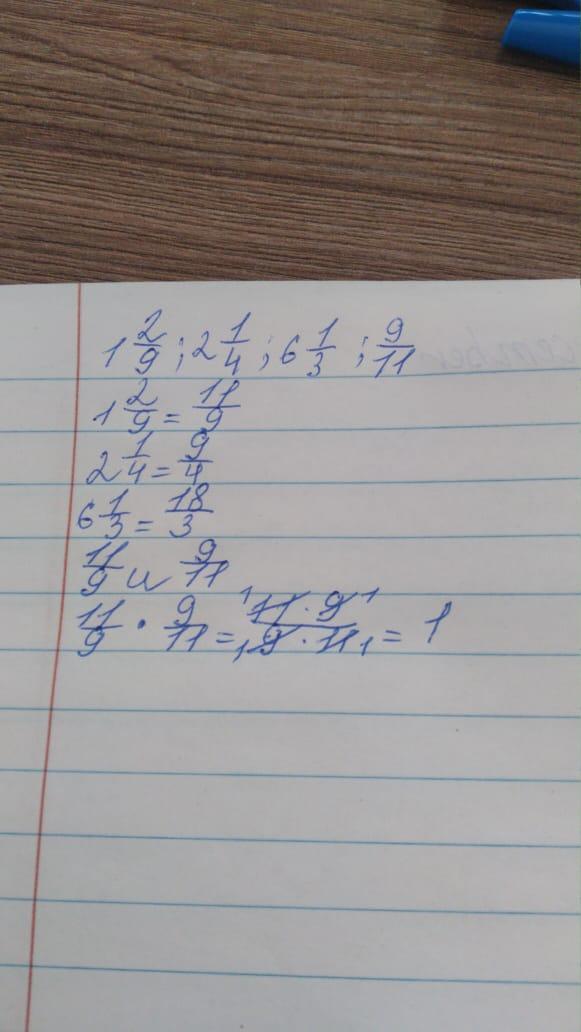 1 2/9 ; 2 1/4 ; 6 1/3 ; 9/11
1 2/9 = 11/9
2 1/4 = 9/4
6 1/3 = 18/3
11/9 и 9/11
11/9 · 9/11 = 1 11 · 9 1 / 1 9 · 11 1 = 1